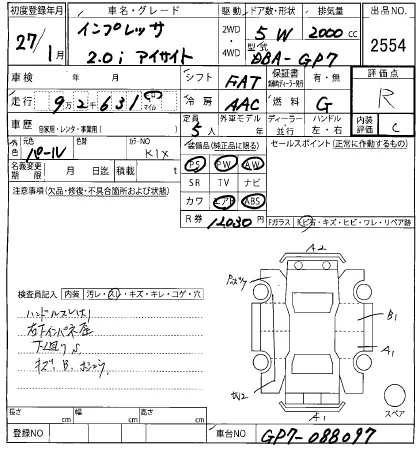 初度登録年月 車名・グレード 駆動 ドア数・形状 排気量 出品NO.
27/1月 インプレッサ 2WD・4WD 5W 2000cc 2554
2.0i アイサイト 型式 DBA-GP7
車検 年 月 シフト FAT 保証書 有・無 評価点
走行 9万2千631 km マイル 冷房 AAC 燃料 G R
車歴 自家用・レンタ・事業用( ) 定員 5人 外車モデル 年 ディーラー・並行 ハンドル 左・右 内装評価 C
外色 元色 パール 色替 カラーNO K1X 装備品(純正品に限る) セールスポイント(正常に作動するもの)
名義変更期限 月 日迄 積載 t PS PW AW
注意事項(欠品・修復・不具合箇所および状態) SR TV ナビ
カワ エアB ABS
R券 12030 Fガラス ヒビ・キズ・ヒビ・ワレ・リペア跡
A2
検査員記入 内装 汚レ・スレ・キズ・キレ・コゲ・穴
ハンドルスレ
B1
A1
W2
A1
スペア
長さ cm 幅 cm 高さ cm
登録NO 車台NO GP7-088097